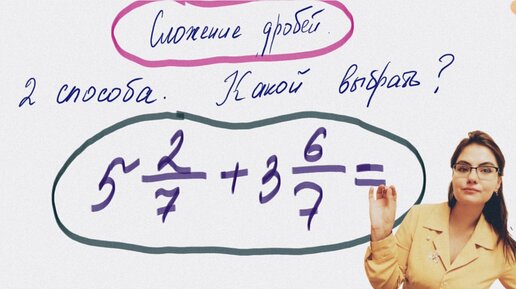 Сложение дробей.
2 способа. Какой выбрать?
5 2/7 + 3 6/7 =